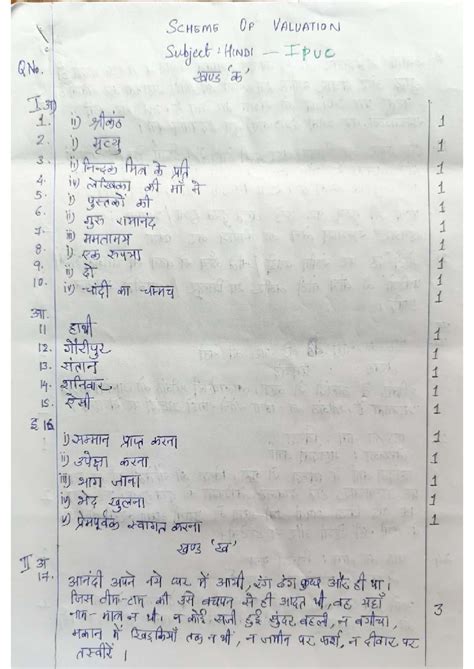 SCHEME OF VALUATION
Subject : HINDI — I PUC
QNo.
खण्ड 'क'
I अ)
1. ii) श्रीकंठ 1
2. i) मृत्यु 1
3. ii) निन्दक मित्र के प्रति 1
4. iv) लेखिका की माँ ने 1
5. i) पुस्तकों की 1
6. ii) गुरु रामानंद 1
7. iii) ममतामय 1
8. i) एक रुपया 1
9. ii) दो 1
10. iv) चांदी का चम्मच 1
आ.
11 हाथी 1
12. गौरीपुर 1
13. संतान 1
14. शनिवार 1
15. ऐसी 1
इ 16.
i) सम्मान प्राप्त करना 1
ii) उपेक्षा करना 1
iii) भाग जाना 1
iv) भेद खुलना 1
v) प्रेमपूर्वक स्वागत करना 1
खण्ड 'ख'
II अ
17. आनंदी अपने नये घर में आयी, रंग ढंग कुछ और ही था।
जिस टीम-टाम की उसे बचपन से ही आदत थी, वह यहाँ
नाम-मात्र न थी। न कोई सजी हुई सुंदर बहली, न बगीचा, 3
मकान में खिड़कियाँ तक न थी, न जमीन पर फर्श, न दीवार पर
तस्वीरें।